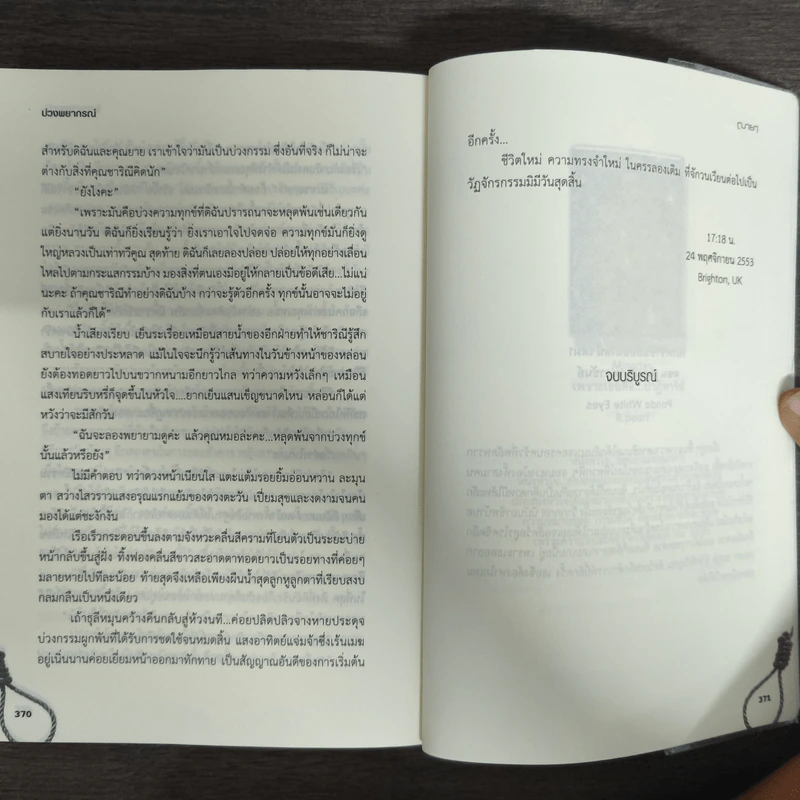 บ่วงพยากรณ์
สำหรับดิฉันและคุณยาย เราเข้าใจว่ามันเป็นบ่วงกรรม ซึ่งอันที่จริง ก็ไม่น่าจะ
ต่างกับสิ่งที่คุณชาริณีคิดนัก”
“ยังไงคะ”
“เพราะมันคือบ่วงความทุกข์ที่ดิฉันปรารถนาจะหลุดพ้นเช่นเดียวกัน
แต่ยิ่งนานวัน ดิฉันก็ยิ่งเรียนรู้ว่า ยิ่งเราเอาใจไปจดจ่อ ความทุกข์มันก็ยิ่งดู
ใหญ่หลวงเป็นเท่าทวีคูณ สุดท้าย ดิฉันก็เลยลองปล่อย ปล่อยให้ทุกอย่างเลื่อน
ไหลไปตามกระแสกรรมบ้าง มองสิ่งที่ตนเองมีอยู่ให้กลายเป็นข้อดีเสีย...ไม่แน่
นะคะ ถ้าคุณชาริณีทำอย่างดิฉันบ้าง กว่าจะรู้ตัวอีกครั้ง ทุกข์นั้นอาจจะไม่อยู่
กับเราแล้วก็ได้”
น้ำเสียงเรียบ เย็นระเรื่อยเหมือนสายน้ำของอีกฝ่ายทำให้ชาริณีรู้สึก
สบายใจอย่างประหลาด แม้ในใจจะนึกรู้ว่าเส้นทางในวันข้างหน้าของหล่อน
ยังต้องทอดยาวไปบนขวากหนามอีกยาวไกล ทว่าความหวังเล็กๆ เหมือน
แสงเทียนริบหรี่ก็จุดขึ้นในหัวใจ....ยากเย็นแสนเข็ญขนาดไหน หล่อนก็ได้แต่
หวังว่าจะมีสักวัน
“ฉันจะลองพยายามดูค่ะ แล้วคุณหมอล่ะคะ...หลุดพ้นจากบ่วงทุกข์
นั้นแล้วหรือยัง”
ไม่มีคำตอบ ทว่าดวงหน้าเนียนใส แตะแต้มรอยยิ้มอ่อนหวาน ละมุน
ตา สว่างไสวราวแสงอรุณแรกแย้มของดวงตะวัน เปี่ยมสุขและงดงามจนคน
มองได้แต่ชะงักงัน
เรือเร็วกระดอนขึ้นลงตามจังหวะคลื่นสีครามที่โยนตัวเป็นระยะบ่าย
หน้ากลับขึ้นสู่ฝั่ง ทิ้งฟองคลื่นสีขาวสะอาดตาทอดยาวเป็นรอยทางที่ค่อยๆ
มลายหายไปทีละน้อย ท้ายสุดจึงเหลือเพียงผืนน้ำสุดลูกหูลูกตาที่เรียบสงบ
กลมกลืนเป็นหนึ่งเดียว
เถ้าธุลีหมุนคว้างคืนกลับสู่ห้วงนที...ค่อยปลิดปลิวจางหายประดุจ
บ่วงกรรมผูกพันที่ได้รับการชดใช้จนหมดสิ้น แสงอาทิตย์แจ่มจ้าซึ่งเร้นเมฆ
อยู่เนิ่นนานค่อยเยี่ยมหน้าออกมาทักทาย เป็นสัญญาณอันดีของการเริ่มต้น
370
อีกครั้ง...
ชีวิตใหม่ ความทรงจำใหม่ ในครรลองเดิม ที่จักวนเวียนต่อไปเป็น
วัฏจักรกรรมมิมีวันสุดสิ้น
17:18 น.
24 พฤศจิกายน 2553
Brighton, UK
จบบริบูรณ์
371